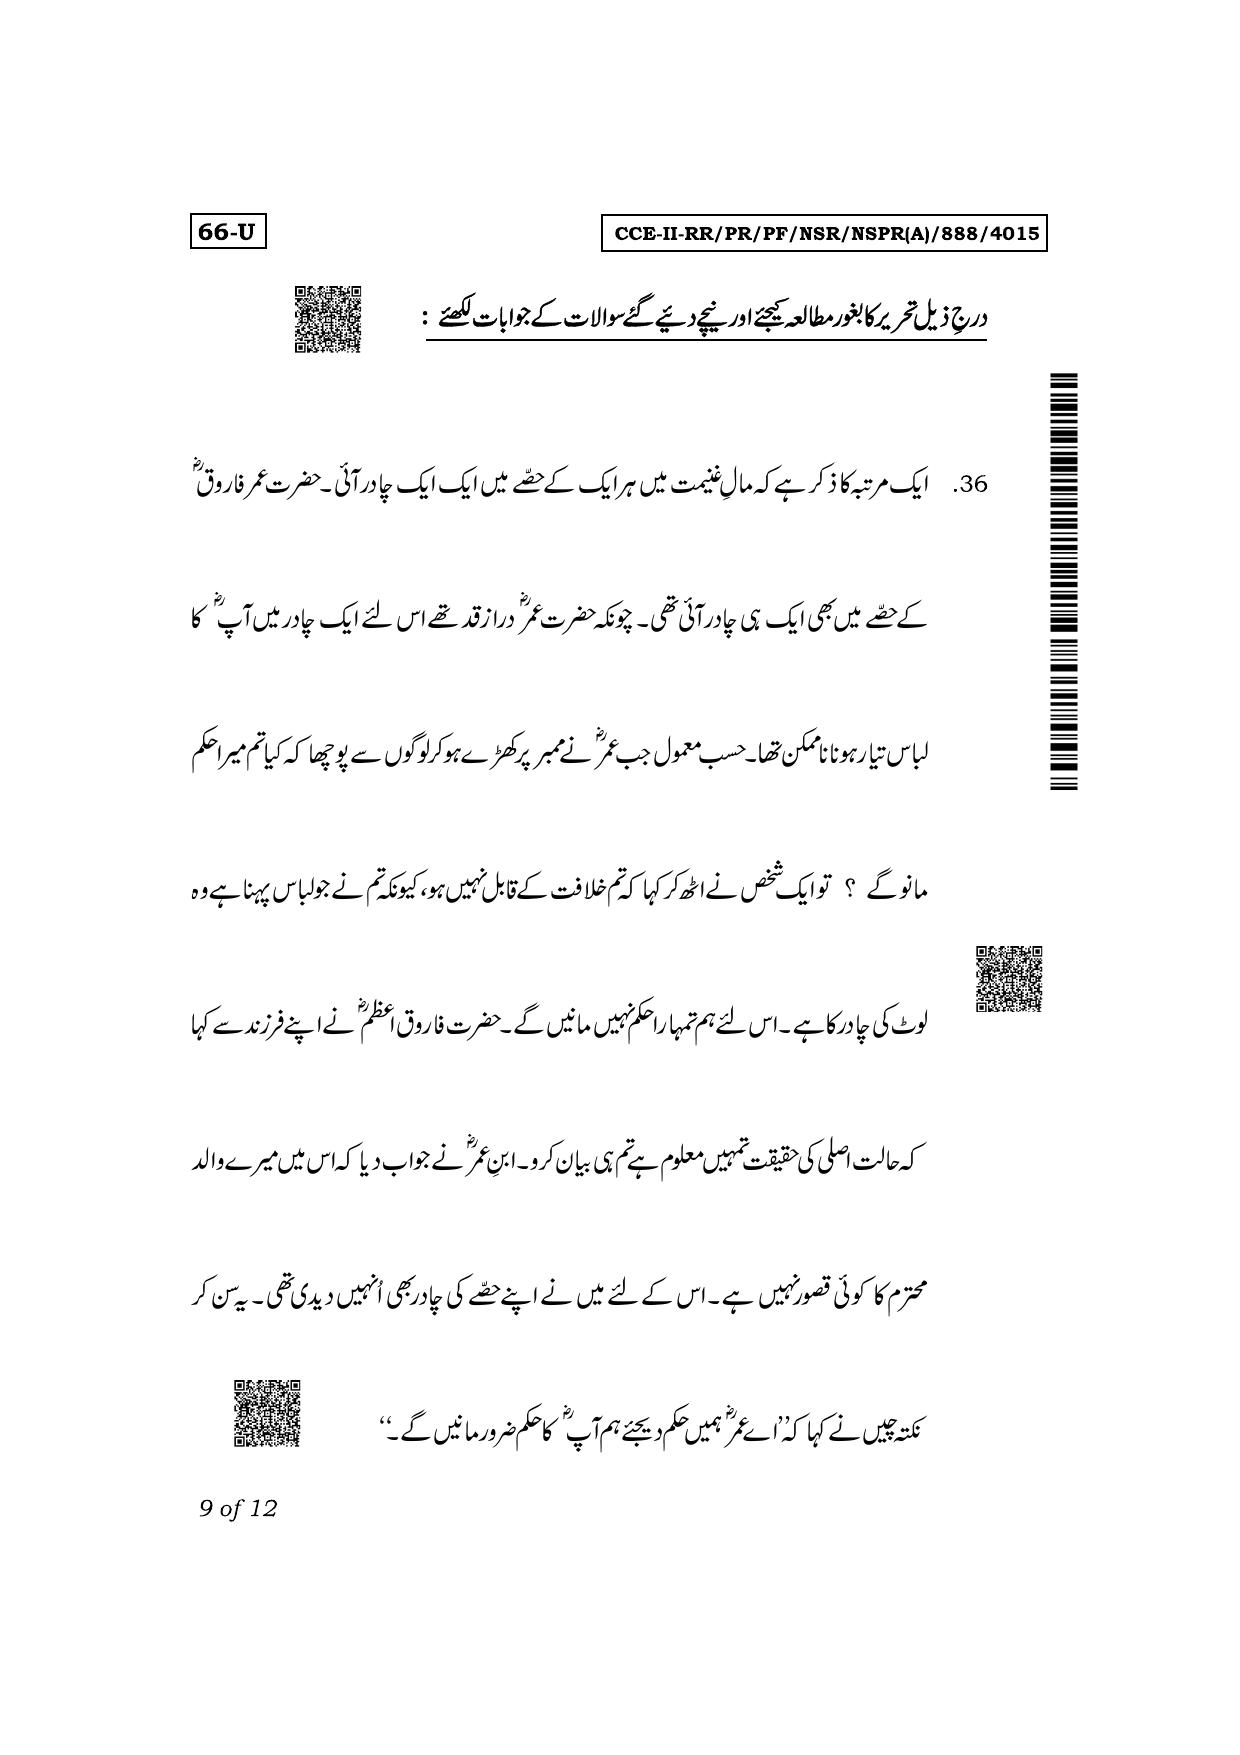 66-U
CCE-II-RR/PR/PF/NSR/NSPR(A)/888/4015
درجِ ذیل تحریر کا بغور مطالعہ کیجئے اور نیچے دئیے گئے سوالات کے جوابات لکھئے :
36. ایک مرتبہ کا ذکر ہے کہ مالِ غنیمت میں ہر ایک کے حصّے میں ایک ایک چادر آئی۔ حضرت عمر فاروقؓ
کے حصّے میں بھی ایک ہی چادر آئی تھی۔ چونکہ حضرت عمرؓ دراز قد تھے اس لئے ایک چادر میں آپؓ کا
لباس تیار ہونا ناممکن تھا۔ حسب معمول جب عمرؓ نے ممبر پر کھڑے ہوکر لوگوں سے پوچھا کہ کیا تم میرا حکم
مانو گے ؟ تو ایک شخص نے اٹھ کر کہا کہ تم خلافت کے قابل نہیں ہو، کیونکہ تم نے جو لباس پہنا ہے وہ
لوٹ کی چادر کا ہے۔ اس لئے ہم تمہارا حکم نہیں مانیں گے۔ حضرت فاروق اعظمؓ نے اپنے فرزند سے کہا
کہ حالت اصلی کی حقیقت تمہیں معلوم ہے تم ہی بیان کرو۔ ابنِ عمرؓ نے جواب دیا کہ اس میں میرے والد
محترم کا کوئی قصور نہیں ہے۔ اس کے لئے میں نے اپنے حصّے کی چادر بھی اُنہیں دیدی تھی۔ یہ سن کر
نکتہ چیں نے کہا کہ ’’اے عمرؓ ہمیں حکم دیجئے ہم آپؓ کا حکم ضرور مانیں گے۔‘‘
9 of 12